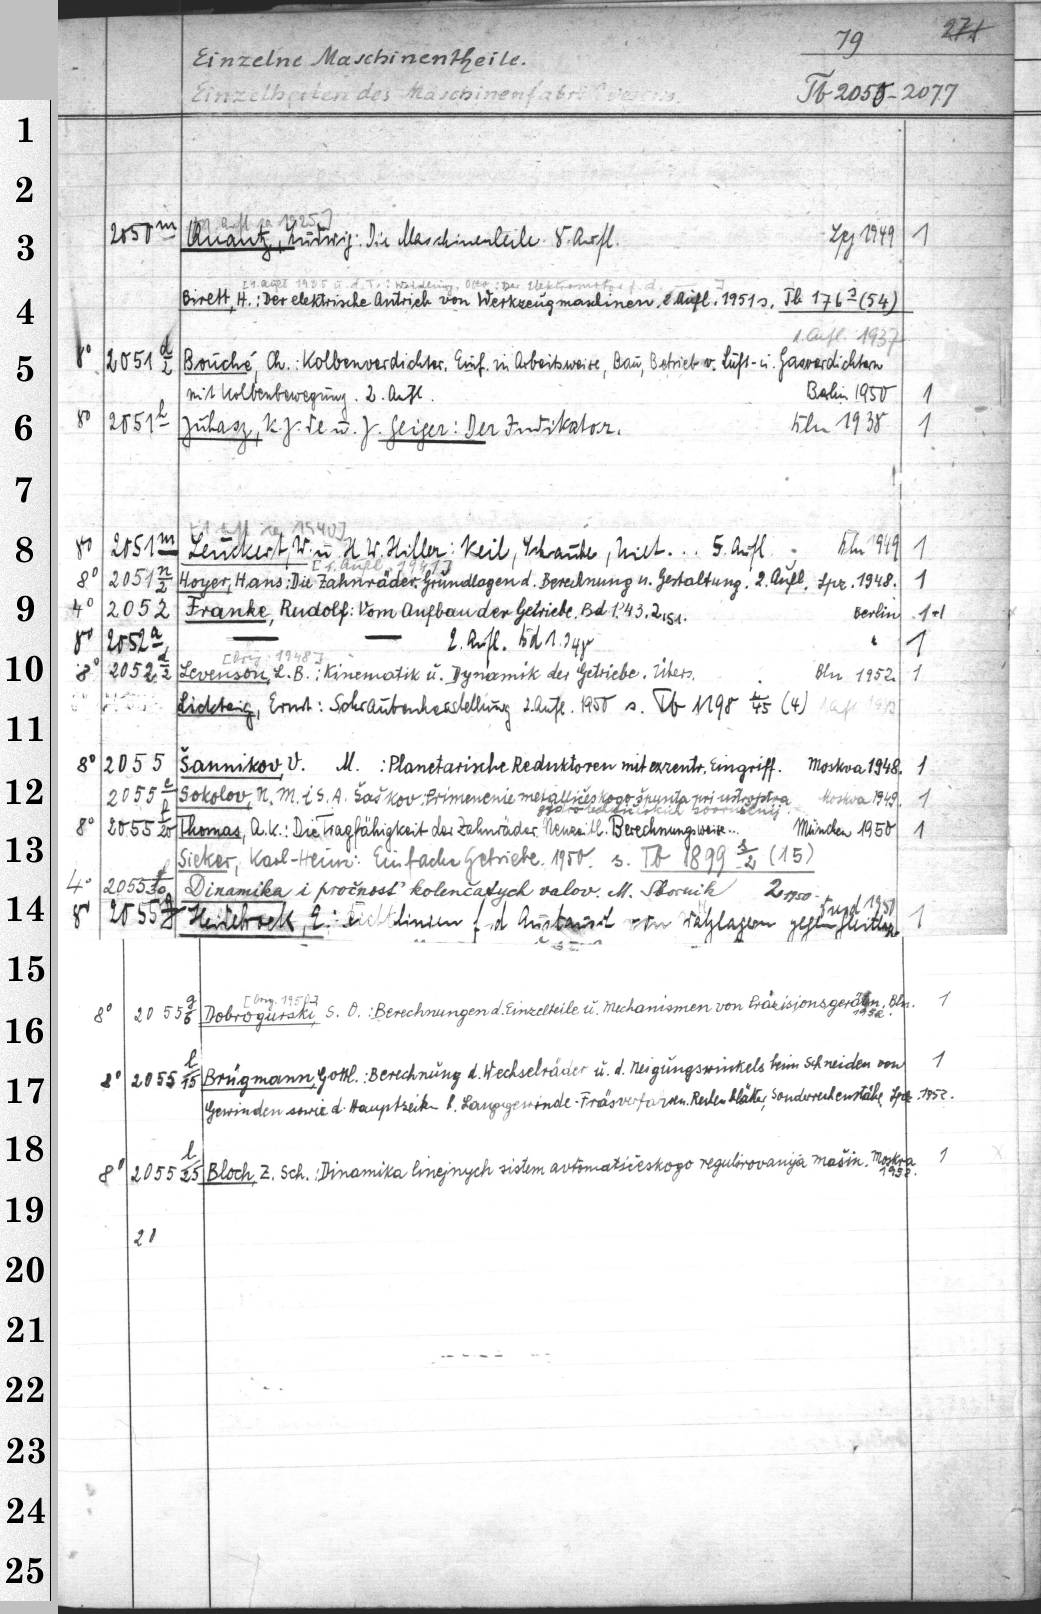 79 271
Einzelne Maschinentheile.
Einzelheiten des Maschinenfabrikwesens. Tb 2050-2077
1
2
[7. Aufl. sa. 1925]
3 2050 m Quantz, Ludwig: Die Maschinenteile. 8. Aufl. Lpz 1949 1
[1. Aufl. 1925 u. d. T.: Otto: Der Elektromotor f. d. ]
4 Birett, H.: Der elektrische Antrieb von Werkzeugmaschinen. 2. Aufl. 1951 s. Tb 176 (54)
1. Aufl. 1937
5 8° 2051 d/2 Bouché, Ch.: Kolbenverdichter. Einf. in Arbeitsweise, Bau, Betrieb v. Luft- u. Gasverdichtern
mit Kolbenbewegung. 2. Aufl. Berlin 1950 1
6 8° 2051 h Juhasz, K. J. de u. J. Geiger: Der Indikator. Bln 1938 1
7
[1. Aufl. sa 1940]
8 8° 2051 m Leuckert, W. u H. W. Hiller: Keil, Schraube, Niet... 5. Aufl. Bln 1949 1
[1. Aufl. 1941]
8° 2051 n/2 Hoyer, Hans: Die Zahnräder. Grundlagen d. Berechnung u. Gestaltung. 2. Aufl. Lpz. 1948. 1
9 4° 2052 Franke, Rudolf: Vom Aufbau der Getriebe. Bd 1. '43. 2, '51. Berlin 1+1
8° 2052 a — — 2. Aufl. Bd 1. 348 " 1
[Orig. 1948]
10 8° 2052 d/2 Levenson, L. B.: Kinematik u. Dynamik der Getriebe. Übers. Bln 1952. 1
Lickteig, Ernst: Schraubenherstellung 2. Aufl. 1950 s. Tb 1198 /45 (4)
11
8° 2055 Šannikov, V. M. : Planetarische Reduktoren mit exzentr. Eingriff. Moskva 1948. 1
12 2055 e Sokolov, N. M. i S. A. Šaškov. Primenenie metalličeskogo špunta pri ustrojstva Moskva 1949. 1
8° 2055 /20 Thomas, A. K.: Die Tragfähigkeit der Zahnräder. Neuzeitl. Berechnungsweise... München 1950 1
13 Sieker, Karl-Heinz: Einfache Getriebe. 1950. s. Tb 1899 s/2 (15)
4° 2055 Dinamika i pročnost' kolenčatych valov. M. Sbornik 2. 1950
14 8° 2055 Heidebroek, E.: Richtlinien f. d Austausch von Wälzlagern gegen Gleitlager 1950 1
15
[Orig. 1951]
16 8° 2055 g/6 Dobrogurski, S. O.: Berechnungen d. Einzelteile u. Mechanismen von Präzisionsgeräten. Bln. 1952. 1
17 8° 2055 l/15 Brügmann, Gottl.: Berechnung d. Wechselräder u. d. Neigungswinkels beim Schneiden von 1
Gewinden sowie d. Hauptzeiten b. Langgewinde-Fräsverfahren. Rechenblätter, Sonderrechenstäbe, Lpz. 1952.
18 8° 2055 l/25 Bloch, Z. Sch.: Dinamika linejnych sistem avtomatičeskogo regulirovanija mašin. Moskva 1952. 1
19
20
20
21
22
23
24
25